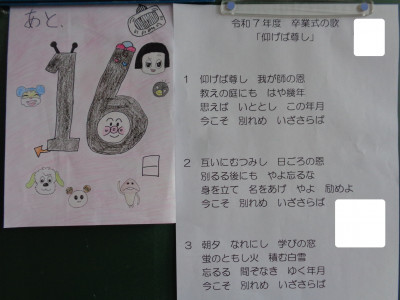 あと、
16
日
令和7年度 卒業式の歌
「仰げば尊し」
1 仰げば尊し 我が師の恩
教えの庭にも はや幾年
思えば いととし この年月
今こそ 別れめ いざさらば
2 互いにむつみし 日ごろの恩
別るる後にも やよ忘るな
身を立て 名をあげ やよ 励めよ
今こそ 別れめ いざさらば
3 朝夕 なれにし 学びの窓
蛍のともし火 積む白雪
忘るる 間ぞなき ゆく年月
今こそ 別れめ いざさらば